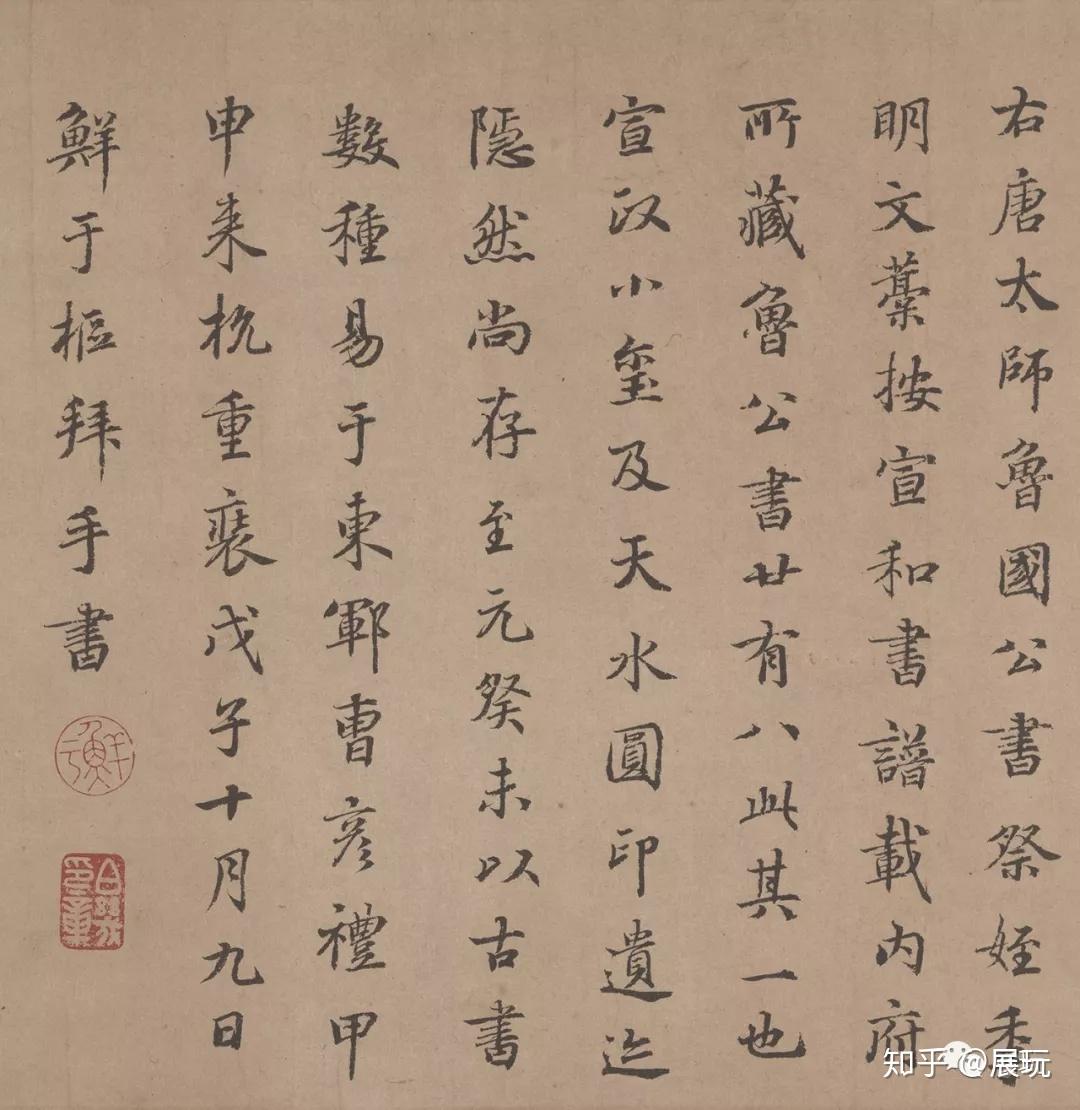 右唐太師魯國公書祭姪季
明文藁按宣和書譜載内府
所藏魯公書廿有八此其一也
宣政小璽及天水圓印遺迹
隱然尚存至元癸未以古書
數種易于東鄆曹彥禮甲
申來杭重裝戊子十月九日
鮮于樞拜手書
知乎 @展玩